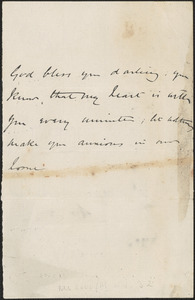 God bless you darling. you
know, that my heart is with
you every minute; let
make you anxious in our
home